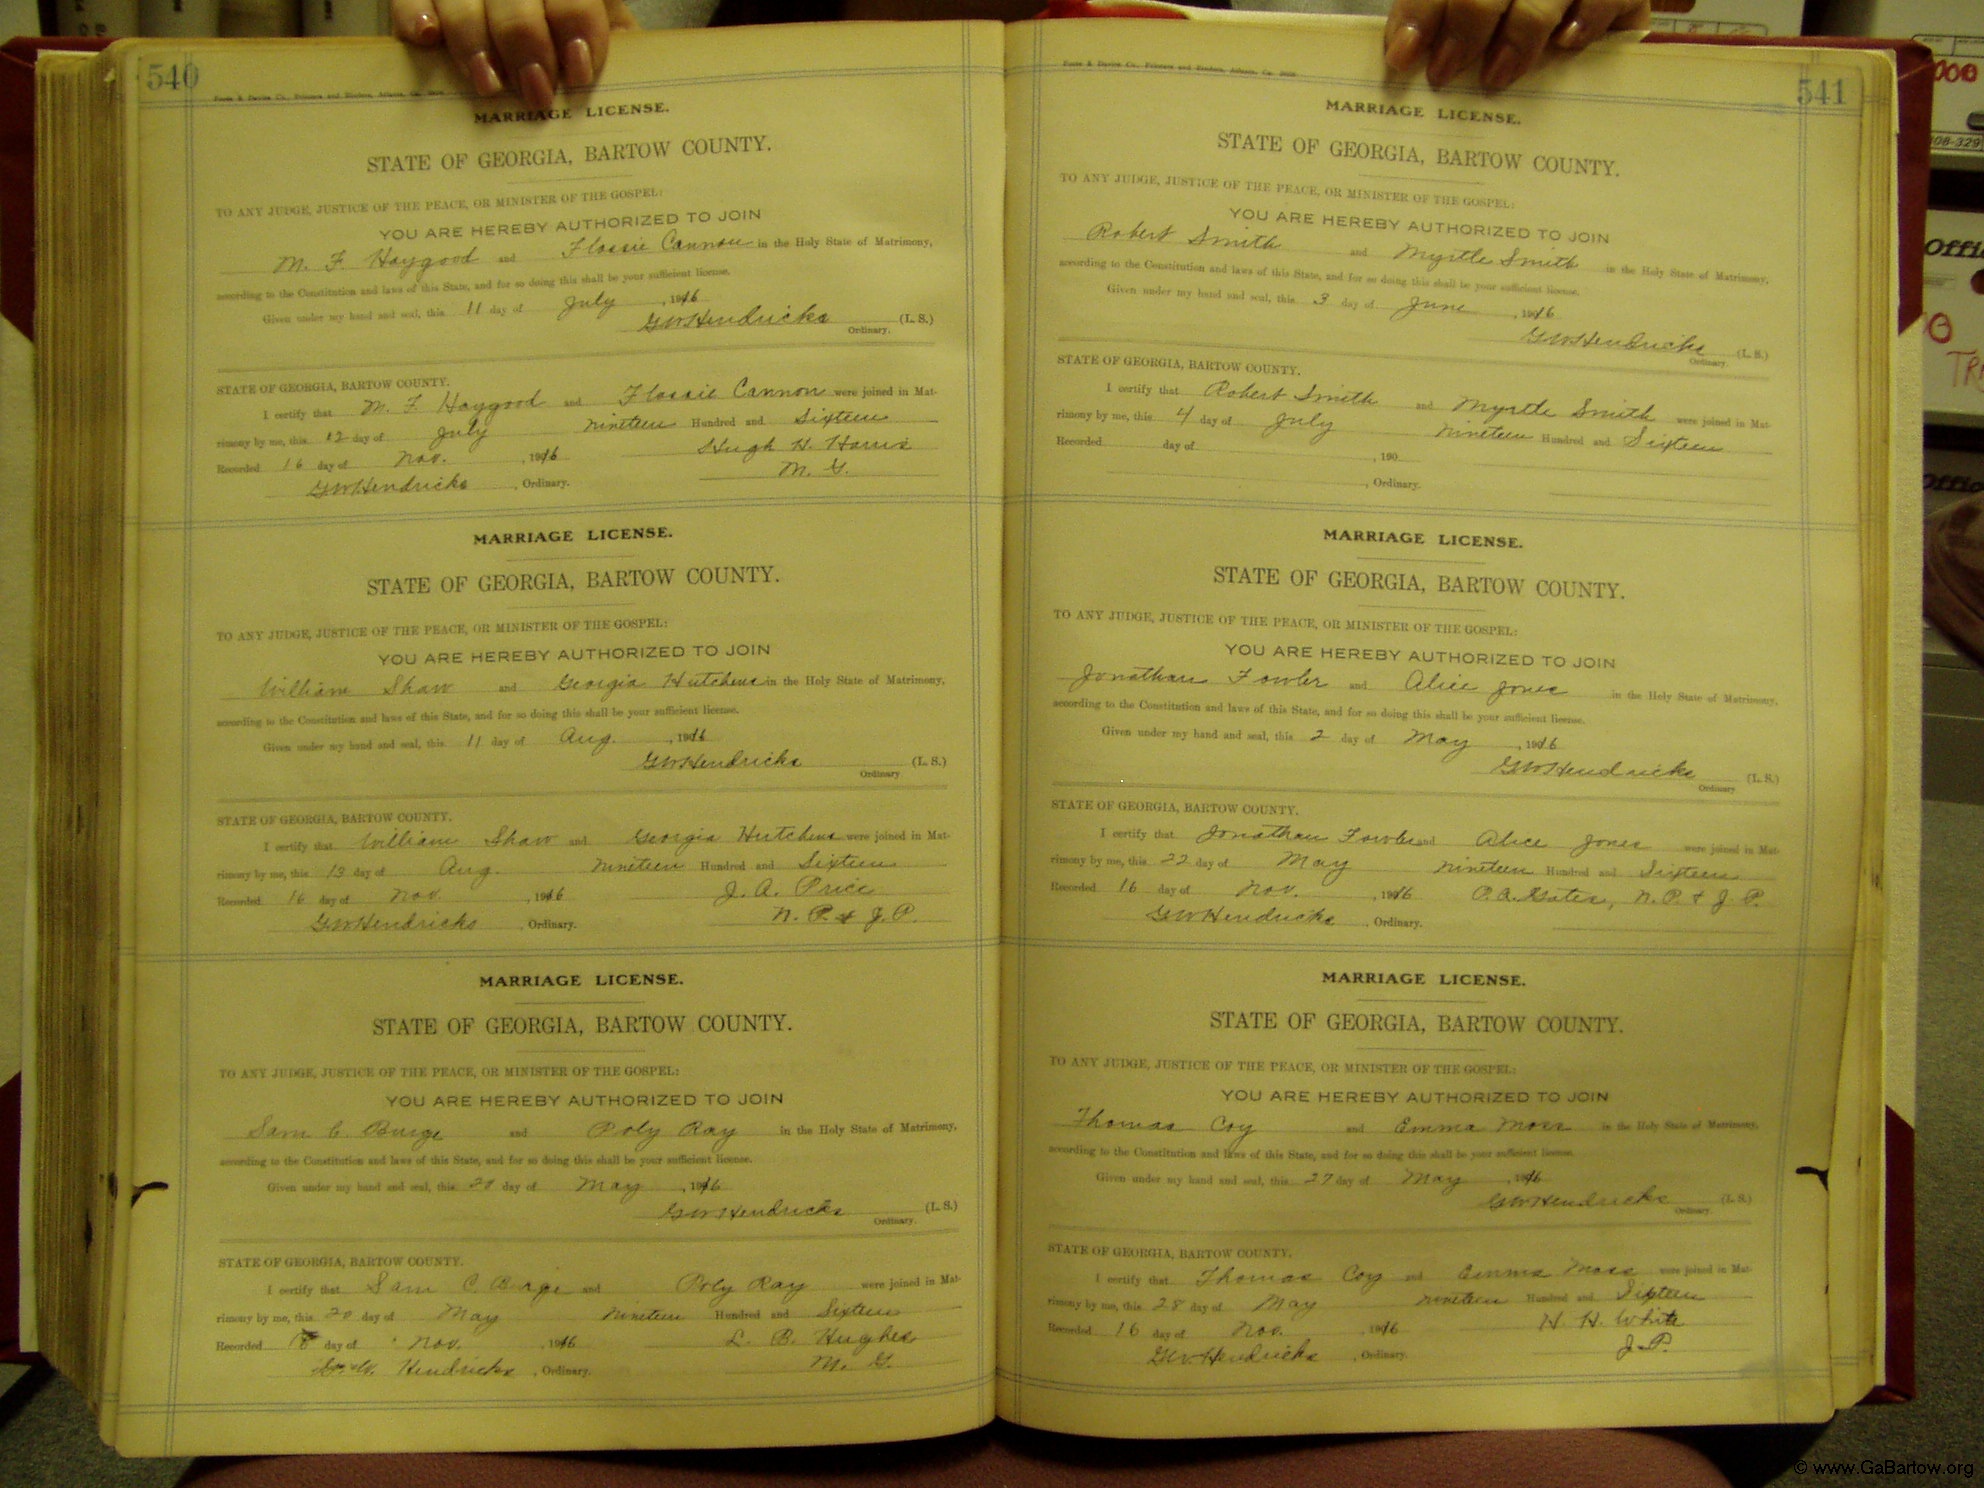 540
Foote & Davies Co., Printers and Binders, Atlanta, Ga.
MARRIAGE LICENSE.
STATE OF GEORGIA, BARTOW COUNTY.
TO ANY JUDGE, JUSTICE OF THE PEACE, OR MINISTER OF THE GOSPEL:
YOU ARE HEREBY AUTHORIZED TO JOIN
M. F. Haygood and Flossie Cannon in the Holy State of Matrimony,
according to the Constitution and laws of this State, and for so doing this shall be your sufficient license.
Given under my hand and seal, this 11 day of July, 1916
GW Hendricks (L. S.)
Ordinary.
STATE OF GEORGIA, BARTOW COUNTY.
I certify that M. F. Haygood and Flossie Cannon were joined in Mat-
rimony by me, this 12 day of July nineteen Hundred and Sixteen
Recorded 16 day of Nov., 1916 Hugh H. Harris
GW Hendricks, Ordinary. M. G.
MARRIAGE LICENSE.
STATE OF GEORGIA, BARTOW COUNTY.
TO ANY JUDGE, JUSTICE OF THE PEACE, OR MINISTER OF THE GOSPEL:
YOU ARE HEREBY AUTHORIZED TO JOIN
William Shaw and Georgia Hutchens in the Holy State of Matrimony,
according to the Constitution and laws of this State, and for so doing this shall be your sufficient license.
Given under my hand and seal, this 11 day of Aug., 1916
GW Hendricks (L. S.)
Ordinary
STATE OF GEORGIA, BARTOW COUNTY.
I certify that William Shaw and Georgia Hutchens were joined in Mat-
rimony by me, this 13 day of Aug. nineteen Hundred and Sixteen
Recorded 16 day of Nov., 1916 J. A. Price
GW Hendricks, Ordinary. N. P. & J. P.
MARRIAGE LICENSE.
STATE OF GEORGIA, BARTOW COUNTY.
TO ANY JUDGE, JUSTICE OF THE PEACE, OR MINISTER OF THE GOSPEL:
YOU ARE HEREBY AUTHORIZED TO JOIN
Sam C. Burge and Poly Ray in the Holy State of Matrimony,
according to the Constitution and laws of this State, and for so doing this shall be your sufficient license.
Given under my hand and seal, this 20 day of May, 1916
GW Hendricks (L. S.)
Ordinary.
STATE OF GEORGIA, BARTOW COUNTY.
I certify that Sam C Burge and Poly Ray were joined in Mat-
rimony by me, this 20 day of May nineteen Hundred and Sixteen
Recorded day of Nov., 1916 L. B. Hughes
G. W. Hendricks, Ordinary. M. G.
541
Foote & Davies Co., Printers and Binders, Atlanta, Ga.
MARRIAGE LICENSE.
STATE OF GEORGIA, BARTOW COUNTY.
TO ANY JUDGE, JUSTICE OF THE PEACE, OR MINISTER OF THE GOSPEL:
YOU ARE HEREBY AUTHORIZED TO JOIN
Robert Smith and Myrtle Smith in the Holy State of Matrimony,
according to the Constitution and laws of this State, and for so doing this shall be your sufficient license.
Given under my hand and seal, this 3 day of June, 1916
GW Hendricks (L. S.)
Ordinary.
STATE OF GEORGIA, BARTOW COUNTY.
I certify that Robert Smith and Myrtle Smith were joined in Mat-
rimony by me, this 4 day of July nineteen Hundred and Sixteen
Recorded day of , 190
, Ordinary.
MARRIAGE LICENSE.
STATE OF GEORGIA, BARTOW COUNTY.
TO ANY JUDGE, JUSTICE OF THE PEACE, OR MINISTER OF THE GOSPEL:
YOU ARE HEREBY AUTHORIZED TO JOIN
Jonathan Fowler and Alice Jones in the Holy State of Matrimony,
according to the Constitution and laws of this State, and for so doing this shall be your sufficient license.
Given under my hand and seal, this 2 day of May, 1916
GW Hendricks (L. S.)
Ordinary
STATE OF GEORGIA, BARTOW COUNTY.
I certify that Jonathan Fowler and Alice Jones were joined in Mat-
rimony by me, this 22 day of May nineteen Hundred and Sixteen
Recorded 16 day of Nov., 1916 P. A. Bates, N. P. & J. P.
GW Hendricks, Ordinary.
MARRIAGE LICENSE.
STATE OF GEORGIA, BARTOW COUNTY.
TO ANY JUDGE, JUSTICE OF THE PEACE, OR MINISTER OF THE GOSPEL:
YOU ARE HEREBY AUTHORIZED TO JOIN
Thomas Coy and Emma Moss in the Holy State of Matrimony,
according to the Constitution and laws of this State, and for so doing this shall be your sufficient license.
Given under my hand and seal, this 27 day of May, 1916
GW Hendricks (L. S.)
Ordinary.
STATE OF GEORGIA, BARTOW COUNTY.
I certify that Thomas Coy and Emma Moss were joined in Mat-
rimony by me, this 28 day of May nineteen Hundred and Sixteen
Recorded 16 day of Nov., 1916 H. H. White
GW Hendricks, Ordinary. J. P.
© www.GaBartow.org